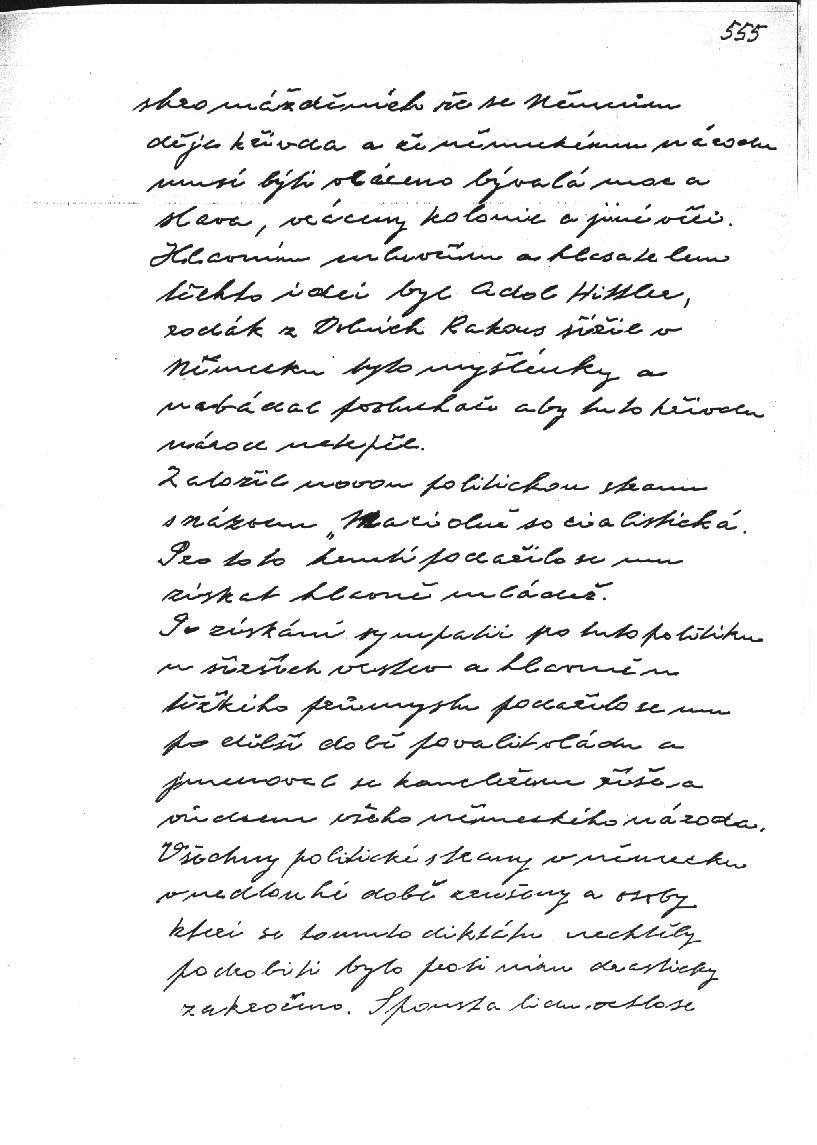 555
shromážděních že se Němcům
děje křivda a že německému národu
musí býti vrácena bývalá moc a
sláva, vráceny kolonie a jiné věci.
Hlavním mluvčím a hlasatelem
těchto idei byl Adol Hittler,
rodák z Dolních Rakous šířil v
Německu tyto myšlénky a
nabádal posluchače aby tuto křivdu
národ netrpěl.
Založil novou politickou stranu
s názvem „Nacielně socialistická.
Pro toto hnutí podařilo se mu
získat hlavně mládež.
Po získání sympatii po tuto politiku
u širších vrstev a hlavně u
těžkého průmyslu podařilo se mu
po delší době povalit vládu a
jmenoval se kancléřem říše a
vůdcem všeho německého národa.
Všechny politické strany v německu
v nedlouhé době zrušeny a osoby
kteří se tomuto diktátu nechtěly
podrobiti bylo proti nim drasticky
zakročeno. Spousta lidu octlo se